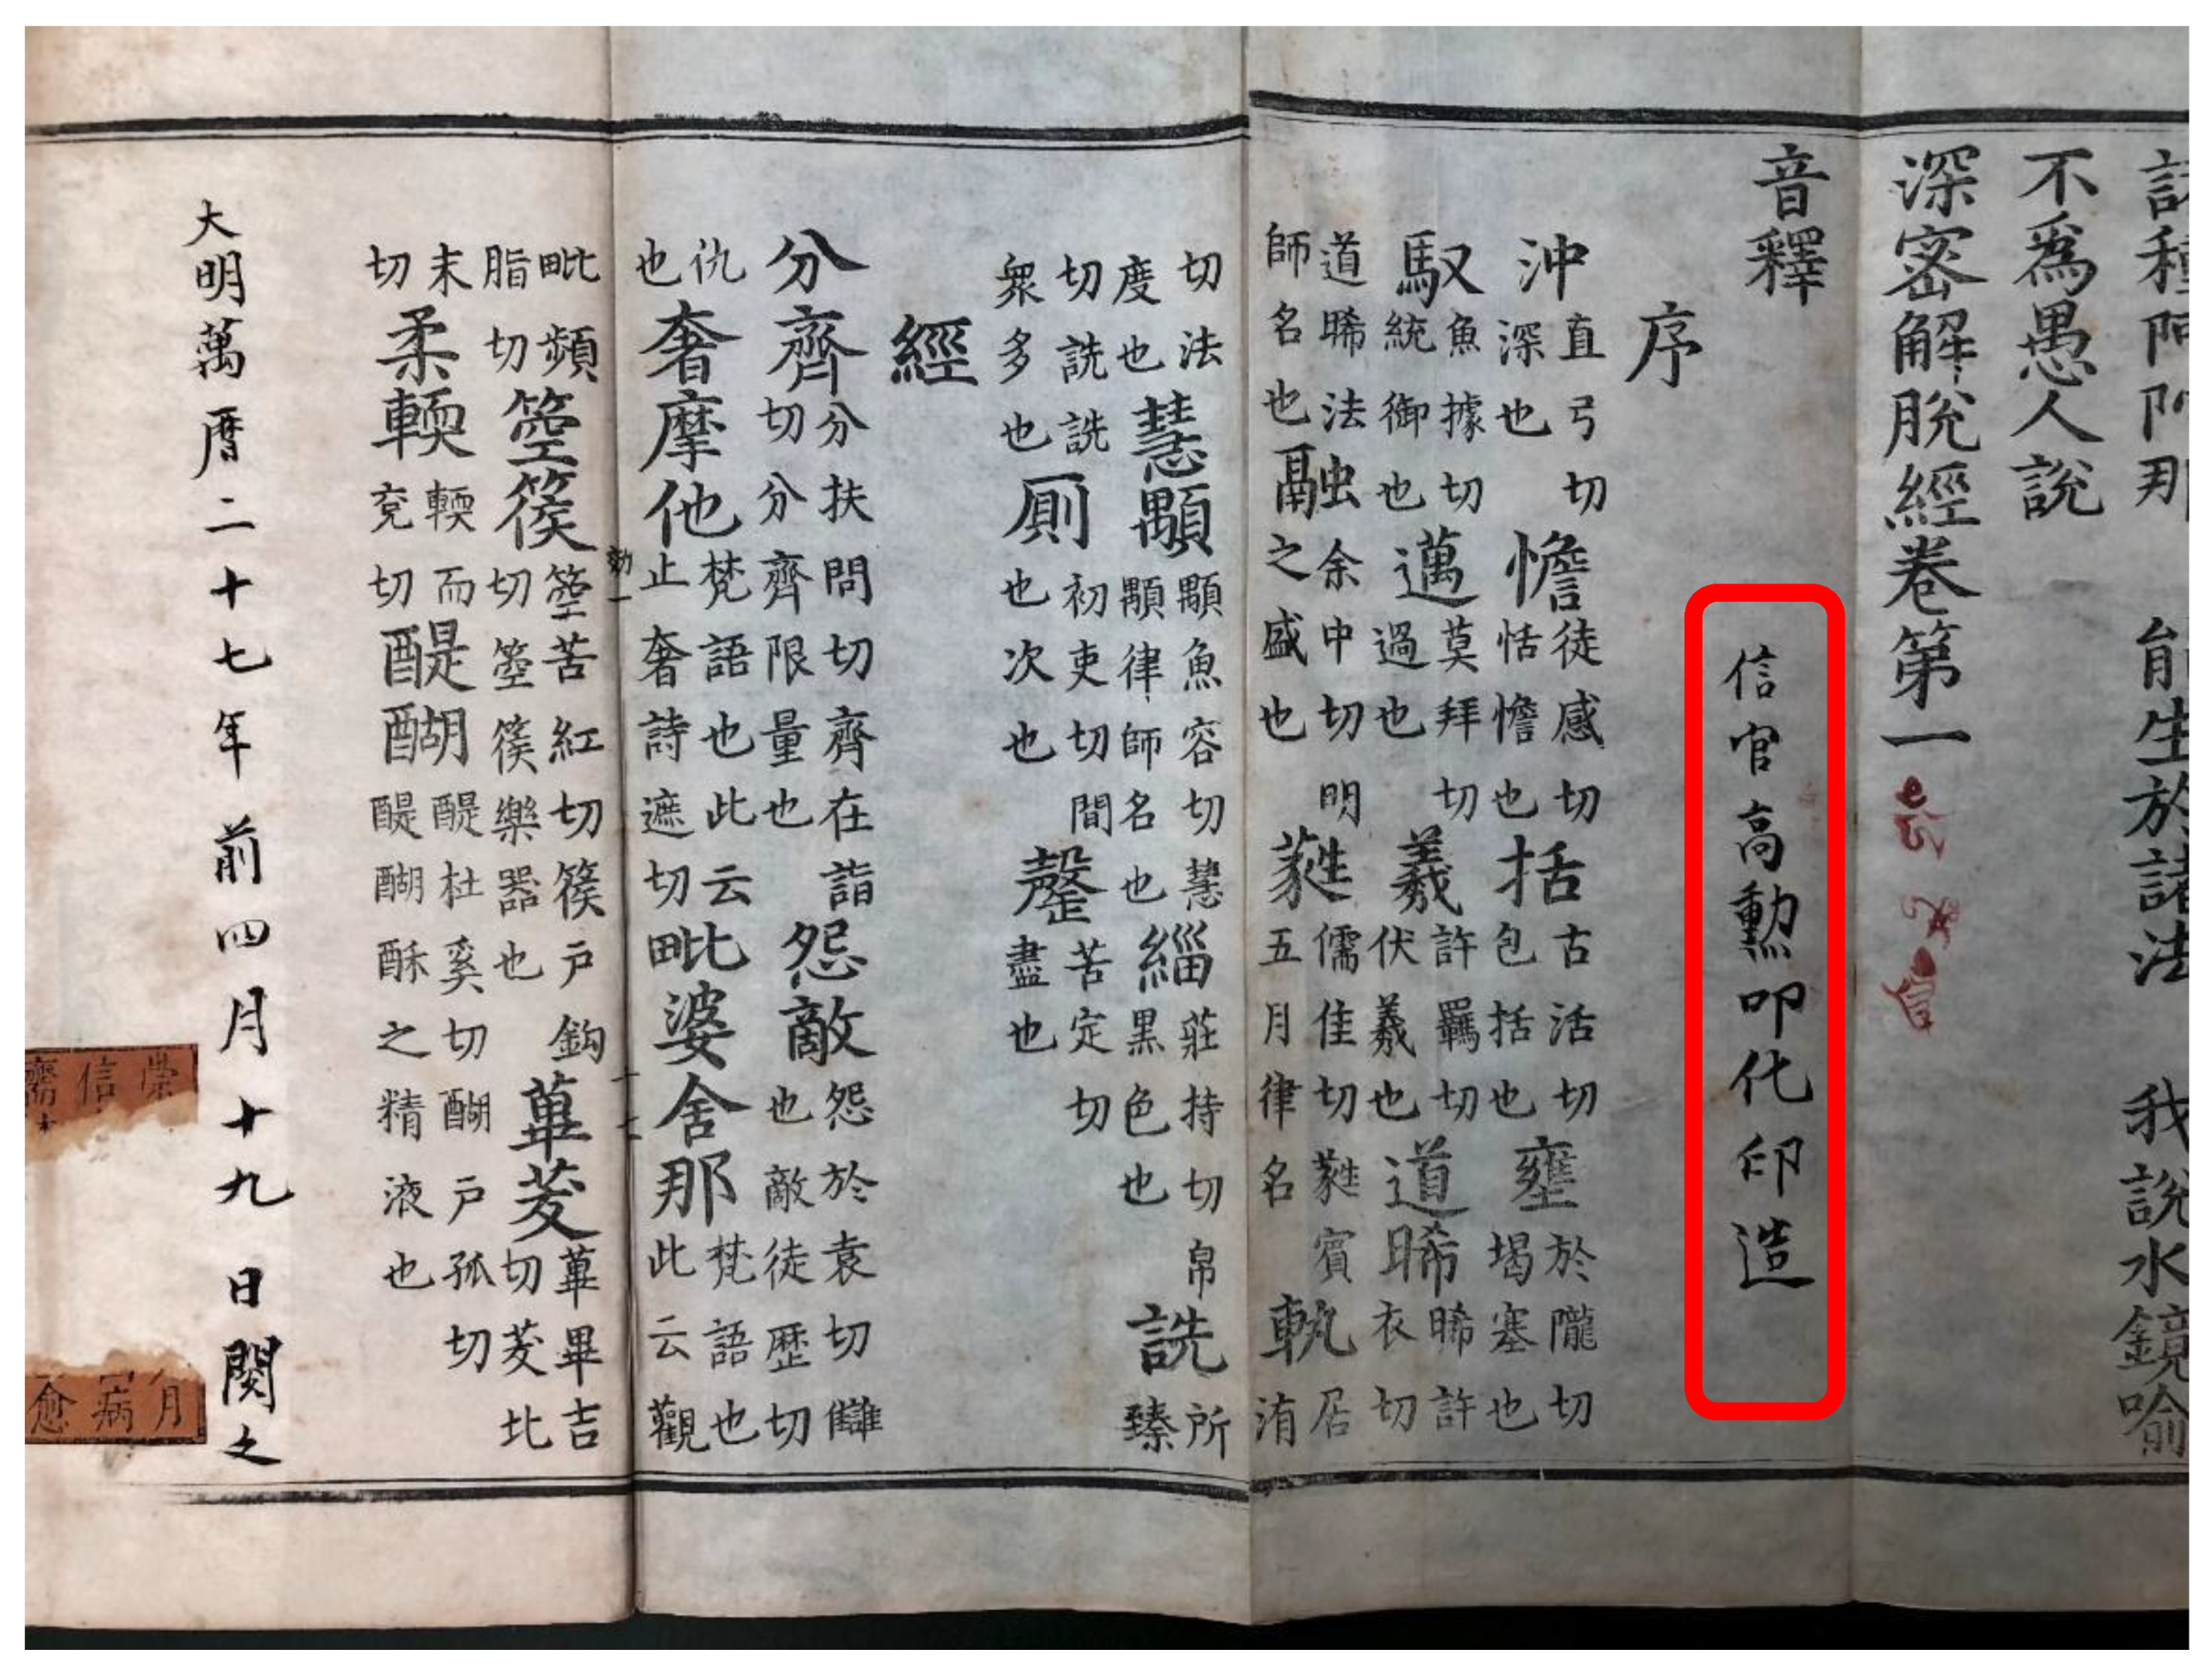 能生於諸法 我說水鏡喻
不為愚人說
深密解脫經卷第一
音釋
信官高勲叩化印造
序
沖直弓切深也憺徒感切恬憺也括古活切包括也壅於隴切堨塞也
馭魚據切統御也邁莫拜切過也羲許羈切伏羲也道晞晞許衣切
道晞法師名也融余中切明之盛也蕤儒佳切蕤賓五月律名軌居洧
切法度也慧顒顒魚容切慧顒律師名也緇莊持切帛黑色也詵所臻
切詵詵眾多也厠初吏切間也次也罄苦定切盡也
經
分齊分扶問切齊在詣切分齊限量也怨敵怨於袁切讎也敵徒歷切
仇也奢摩他梵語也此云止奢詩遮切毗婆舍那梵語也此云觀
毗頻脂切箜篌箜苦紅切篌戶鈎切箜篌樂器也蓽茇蓽畢吉切茇北
末切柔輭輭而兗切醍醐醍杜奚切醐戶孤切醍醐酥之精液也
大明萬曆二十七年前四月十九日閱之
月病愈